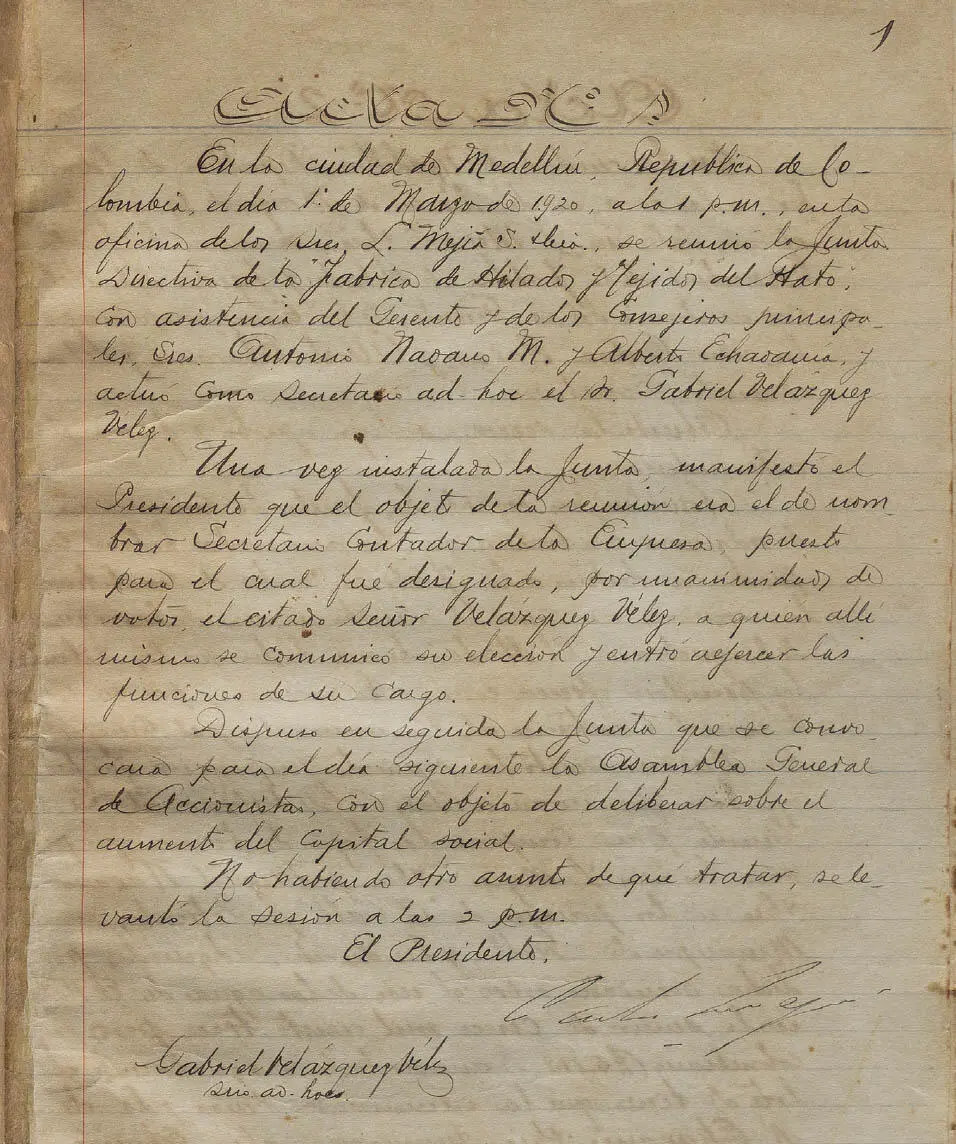 1
Acta Nº 1
En la ciudad de Medellín, Republica de Co-
lombia, el día 1º de Marzo de 1920, a la 1 p.m., en la
oficina de los Sres. L. Mejía S. & Cía., se reunió la Junta
Directiva de la "Fabrica de Hilados y Tejidos del Hato",
con asistencia del Gerente y de los Consejeros principa-
les, Sres. Antonio Navarro M. y Alberto Echavarría, y
actuó como Secretario ad-hoc el Sr. Gabriel Velázquez
Vélez.
Una vez instalada la Junta, manifestó el
Presidente que el objeto de la reunión era el de nom-
brar Secretario Contador de la Empresa, puesto
para el cual fué designado, por unanimidad de
votos, el citado señor Velázquez Vélez, a quien allí
mismo se comunicó su elección y entró a ejercer las
funciones de su cargo.
Dispuso en seguida la Junta que se convo-
cara para el día siguiente la Asamblea General
de Accionistas, con el objeto de deliberar sobre el
aumento del Capital social.
No habiendo otro asunto de qué tratar, se le-
vantó la sesión a las 2 p.m.
El Presidente,
Gabriel Velázquez Vélez
Srio. ad-hoc.